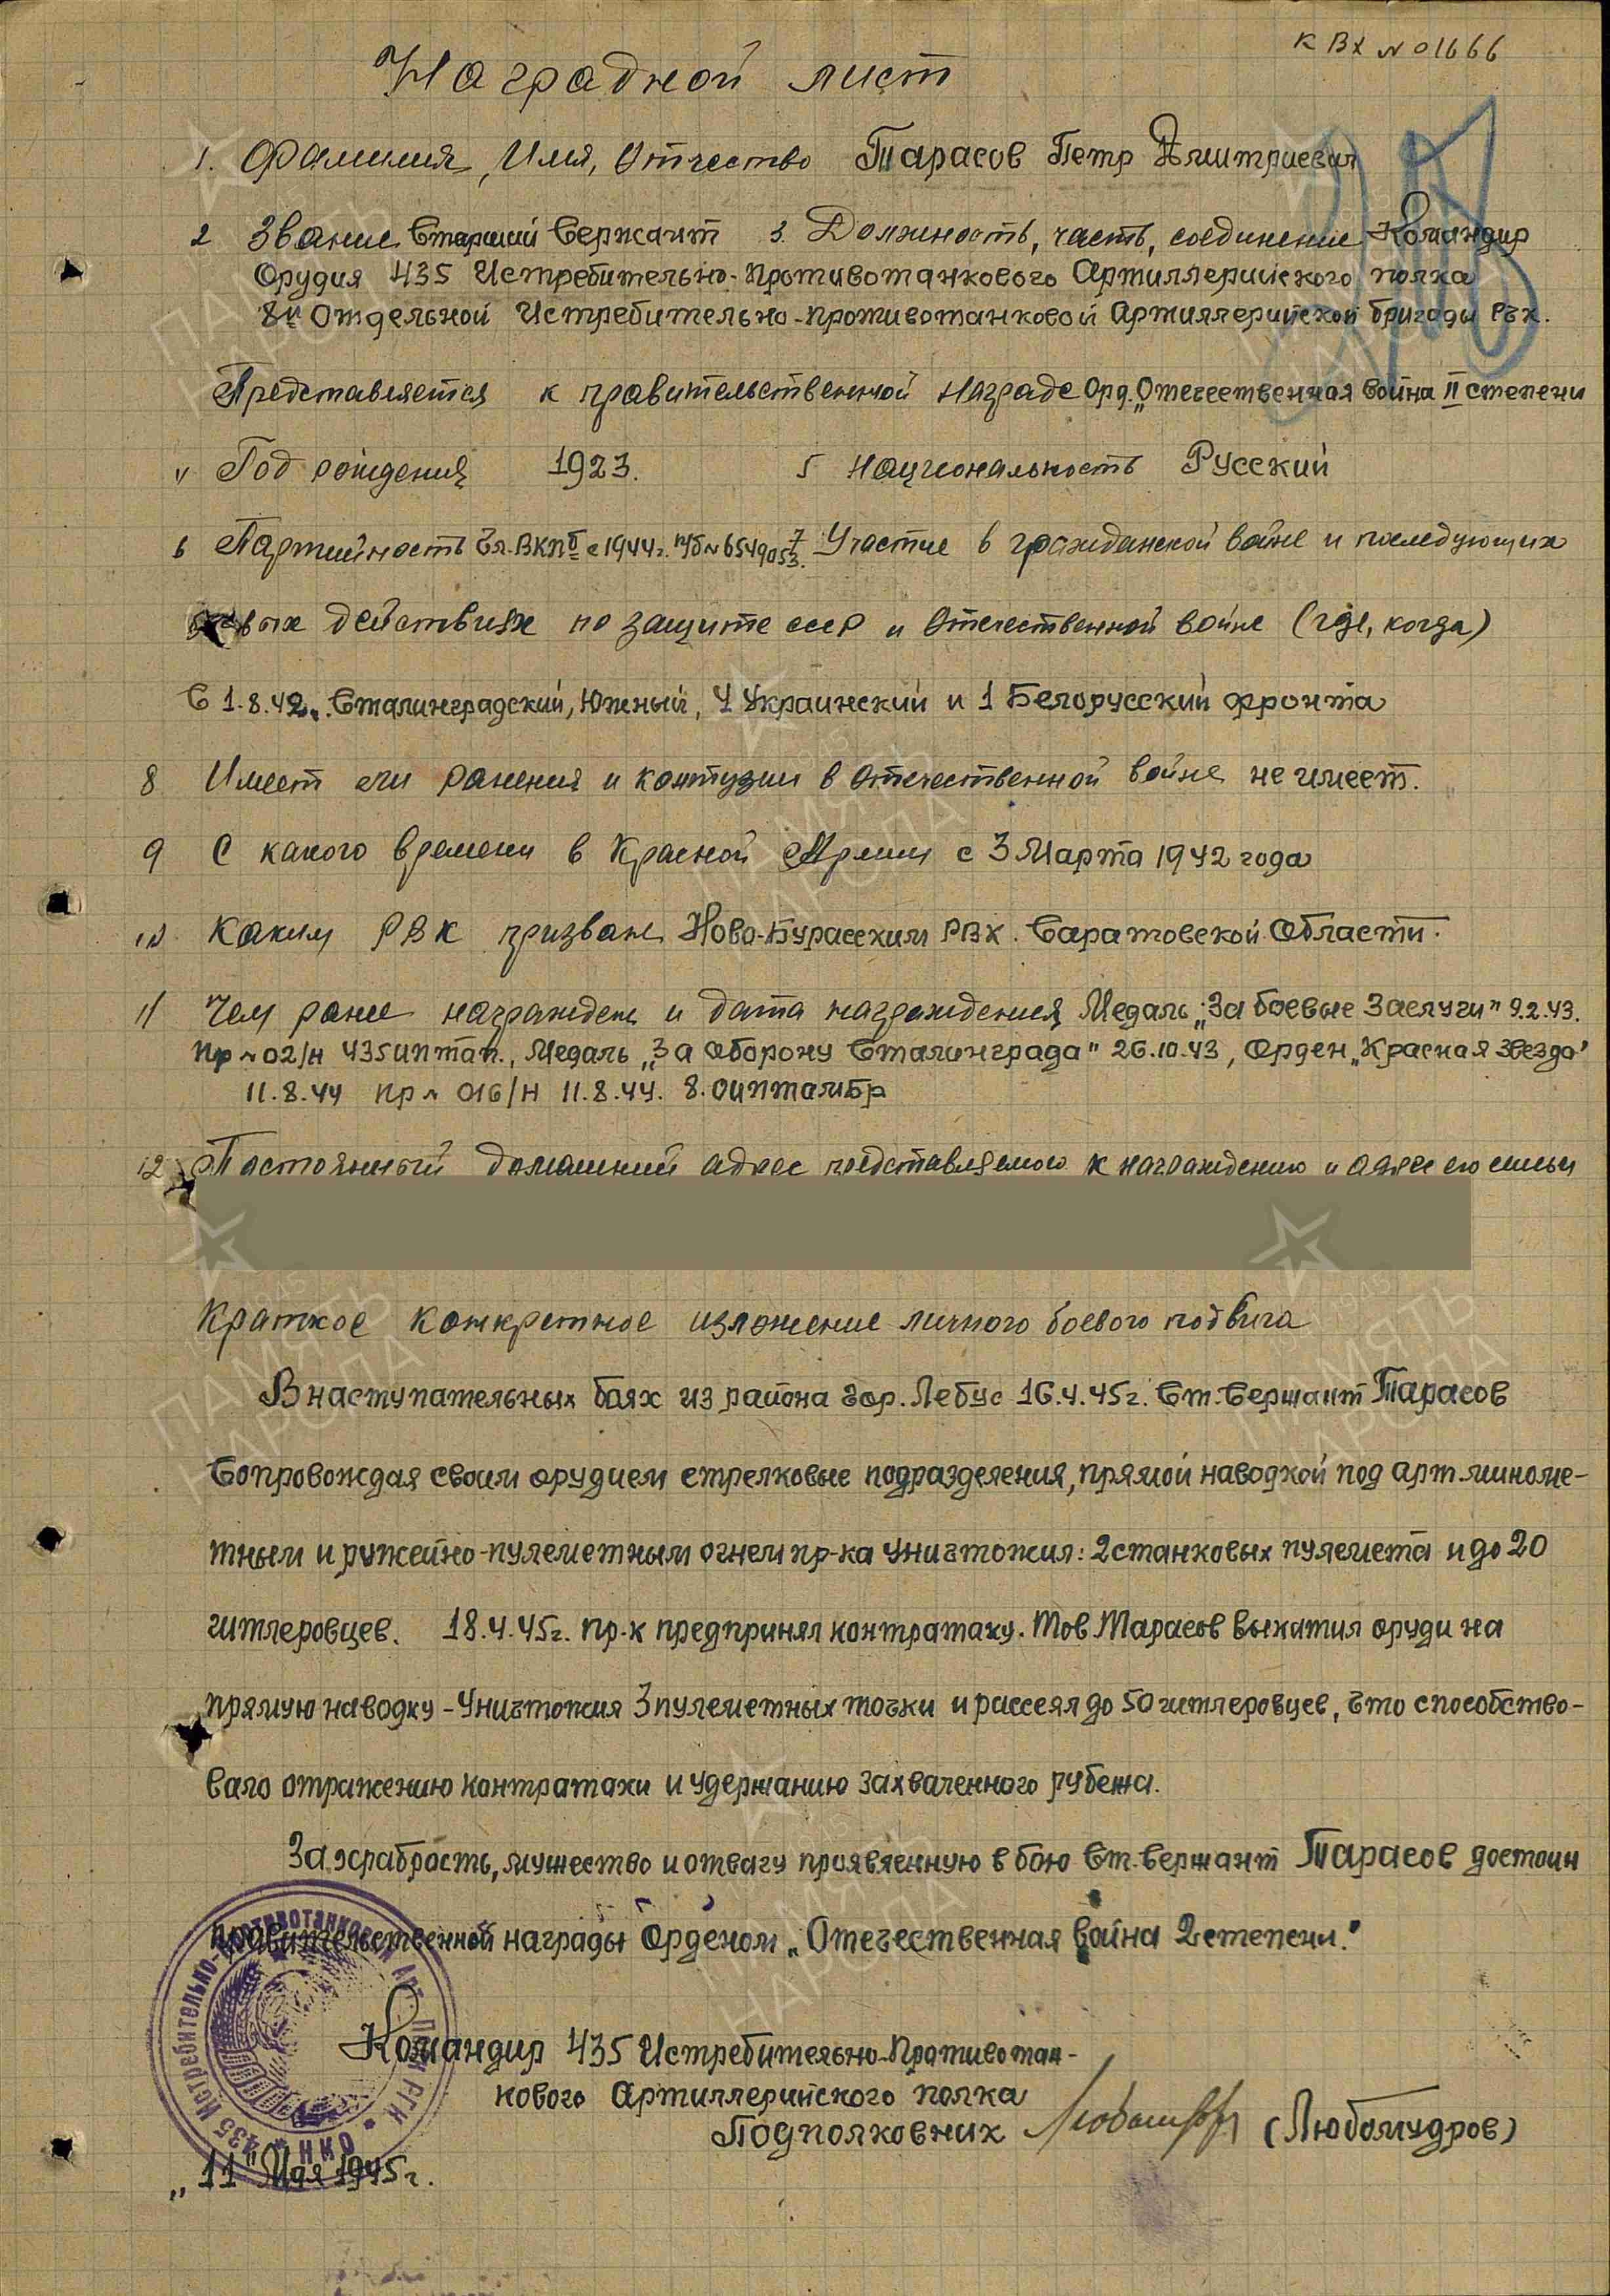 к вх № 01666
Наградной лист
1. Фамилия, Имя, Отчество Тарасов Петр Дмитриевич
2 Звание Старший Сержант 3. Должность, часть, соединение Командир
Орудия 435 Истребительно-Противотанкового Артиллерийского полка
8й Отдельной Истребительно-противотанковой Артиллерийской бригады РГК.
Представляется к правительственной награде Орд. „Отечественная война II степени
4 Год рождения 1923. 5 Национальность Русский
6 Партийность Чл. ВКПб с 1944г. п/б № 6549053. 7 Участие в гражданской войне и последующих
боевых действиях по защите СССР и Отечественной войне (где, когда)
С 1.8.42г. Сталинградский, Южный, 4 Украинский и 1 Белорусский фронта
8 Имеет ли ранения и контузии в Отечественной войне не имеет.
9 С какого времени в Красной Армии с 3 Марта 1942 года
10 Каким РВК призван Ново-Бурасским РВК. Саратовской Области.
11 Чем ранее награжден и дата награждения Медаль „За боевые Заслуги" 9.2.43.
пр № 02/н 435 иптап., Медаль „За оборону Сталинграда" 26.10.43, Орден „Красная звезда"
11.8.44 пр № 016/н 11.8.44. 8. оиптамбр
12 Постоянный домашний адрес представляемого к награждению и адрес его семьи
Краткое конкретное изложение личного боевого подвига
В наступательных боях из района гор. Лебус 16.4.45г. Ст. Сержант Тарасов
Сопровождая своим орудием стрелковые подразделения, прямой наводкой под арт. миноме-
тным и ружейно-пулеметным огнем пр-ка уничтожил: 2 станковых пулемета и до 20
гитлеровцев. 18.4.45г. пр-к предпринял контратаку. Тов. Тарасов выкатил оруди на
прямую наводку - Уничтожил 3 пулеметных точки и рассеял до 50 гитлеровцев, что способство-
вало отражению контратаки и удержанию захваченного рубежа.
За храбрость, мужество и отвагу проявленную в бою Ст. Сержант Тарасов достоин
правительственной награды Орденом „Отечественная война 2 степени."
Командир 435 Истребительно-Противотан-
кового Артиллерийского полка
Подполковник (Любомудров)
„11" Мая 1945г.
435 Истребительно-Противотанковый Арт. Полк РГК
НКО
ПАМЯТЬ
НАРОДА